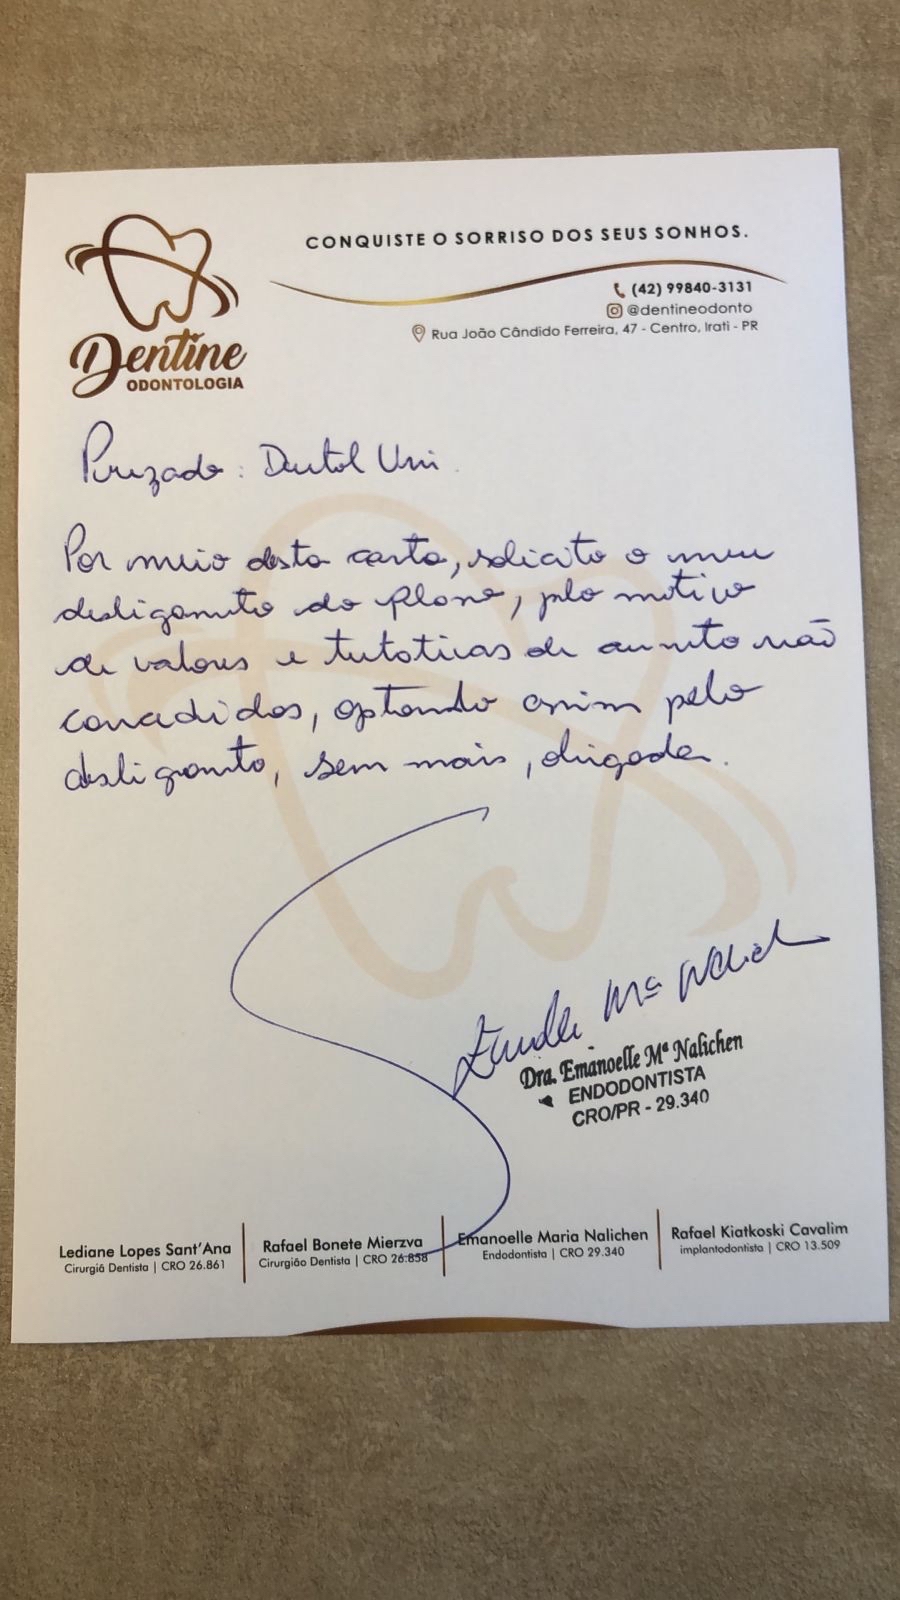 CONQUISTE O SORRISO DOS SEUS SONHOS.
(42) 99840-3131
@dentineodonto
Rua João Cândido Ferreira, 47 - Centro, Irati - PR
Dentine
ODONTOLOGIA
Prezado: Dental Uni.
Por meio desta carta, solicito o meu
desligamento do Plano, pelo motivo
de valores e tentativas de aumento não
concedidos, optando assim pelo
desligamento, sem mais, obrigada.
Dra. Emanoelle Mª Nalichen
ENDODONTISTA
CRO/PR - 29.340
Lediane Lopes Sant'Ana
Cirurgiã Dentista | CRO 26.861
Rafael Bonete Mierzva
Cirurgião Dentista | CRO 26.858
Emanoelle Maria Nalichen
Endodontista | CRO 29.340
Rafael Kiatkoski Cavalim
implantodontista | CRO 13.509